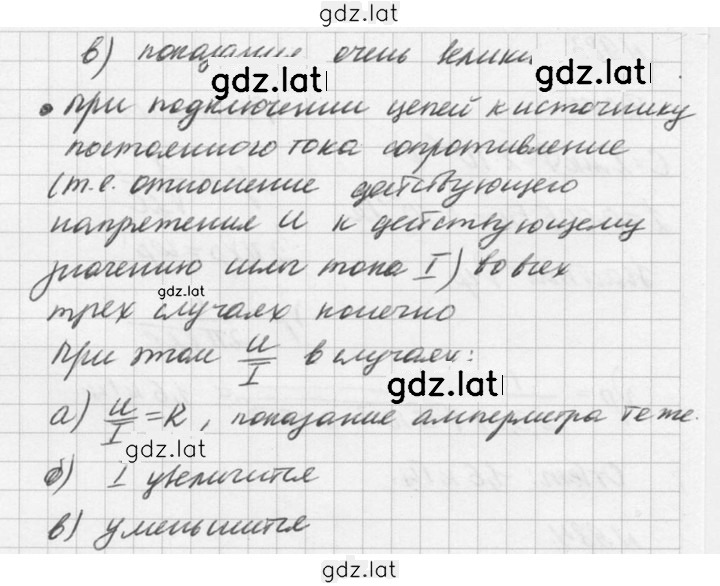 gdz.lat
в) показание очень велики
gdz.lat gdz.lat
• При подключении цепей к источнику
постоянного тока сопротивление
(т.е. отношение действующего
напряжения U к действующему
значению силы тока I) во всех
gdz.lat
трех случаях конечно
При этом U/I в случаях:
gdz.lat
а) U/I = R, показание амперметра те же.
gdz.lat
б) I увеличится
в) уменьшится
gdz.lat